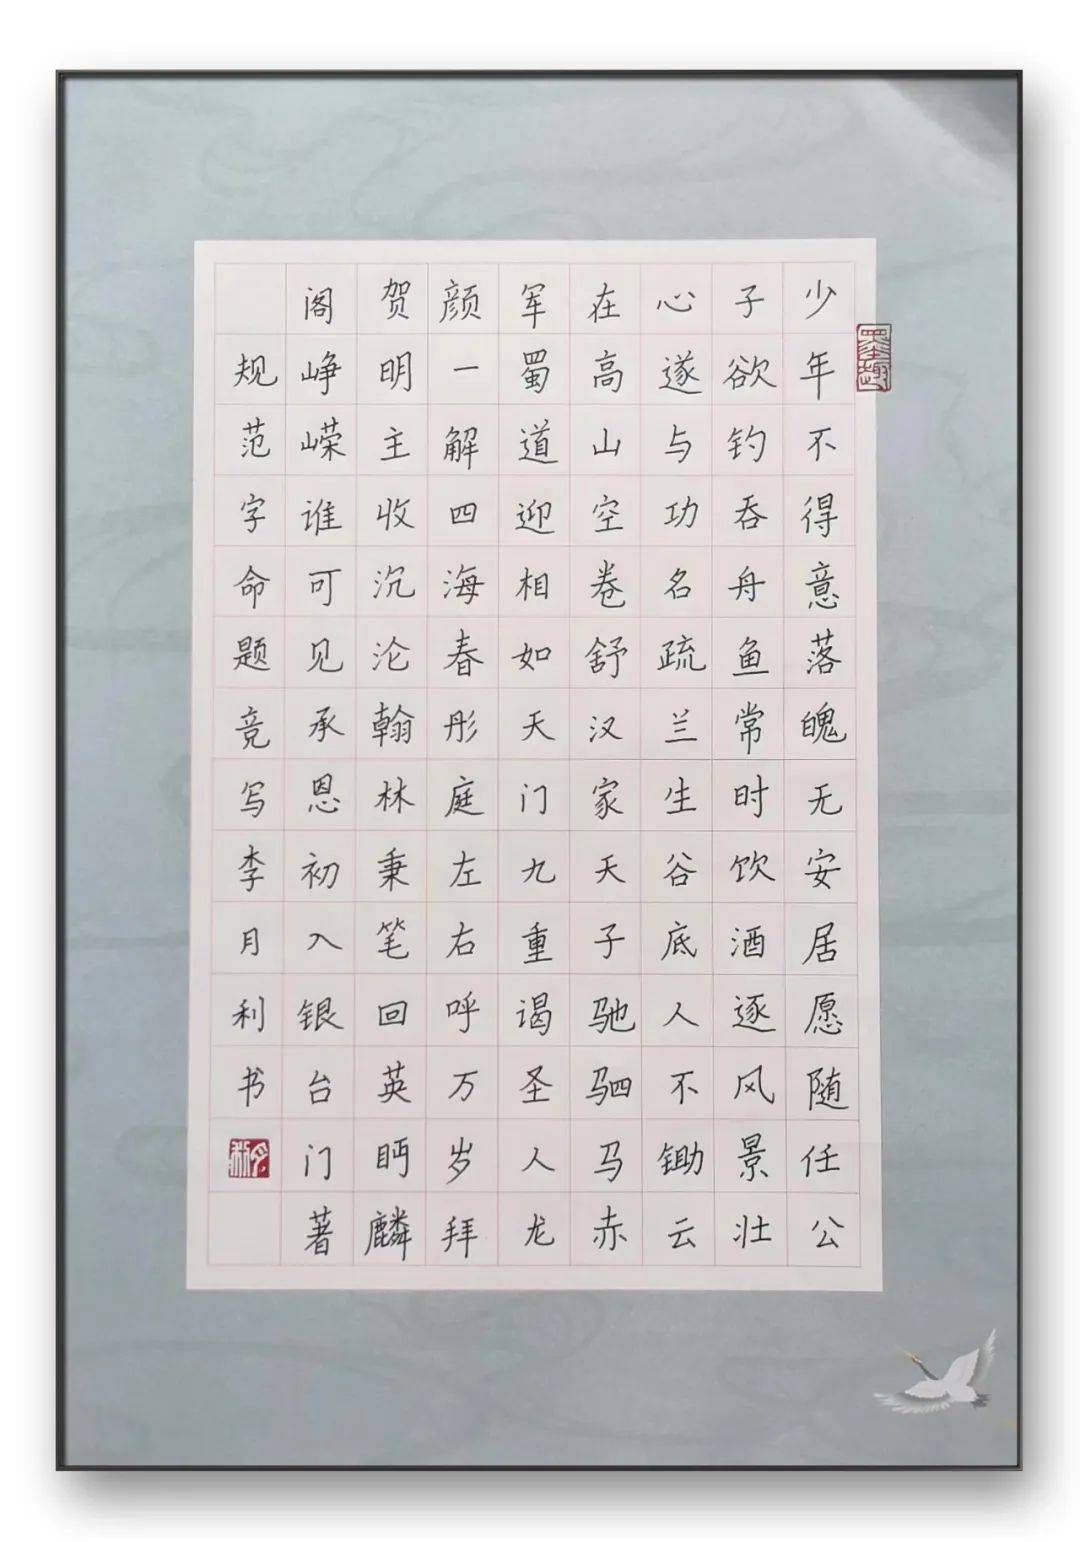 少年不得意落魄无安居愿随任公
子欲钓吞舟鱼常时饮酒逐风景壮
心遂与功名疏兰生谷底人不锄云
在高山空卷舒汉家天子驰驷马赤
军蜀道迎相如天门九重谒圣人龙
颜一解四海春彤庭左右呼万岁拜
贺明主收沉沦翰林秉笔回英眄麟
阁峥嵘谁可见承恩初入银台门著
规范字命题竞写李月利书
墨趣